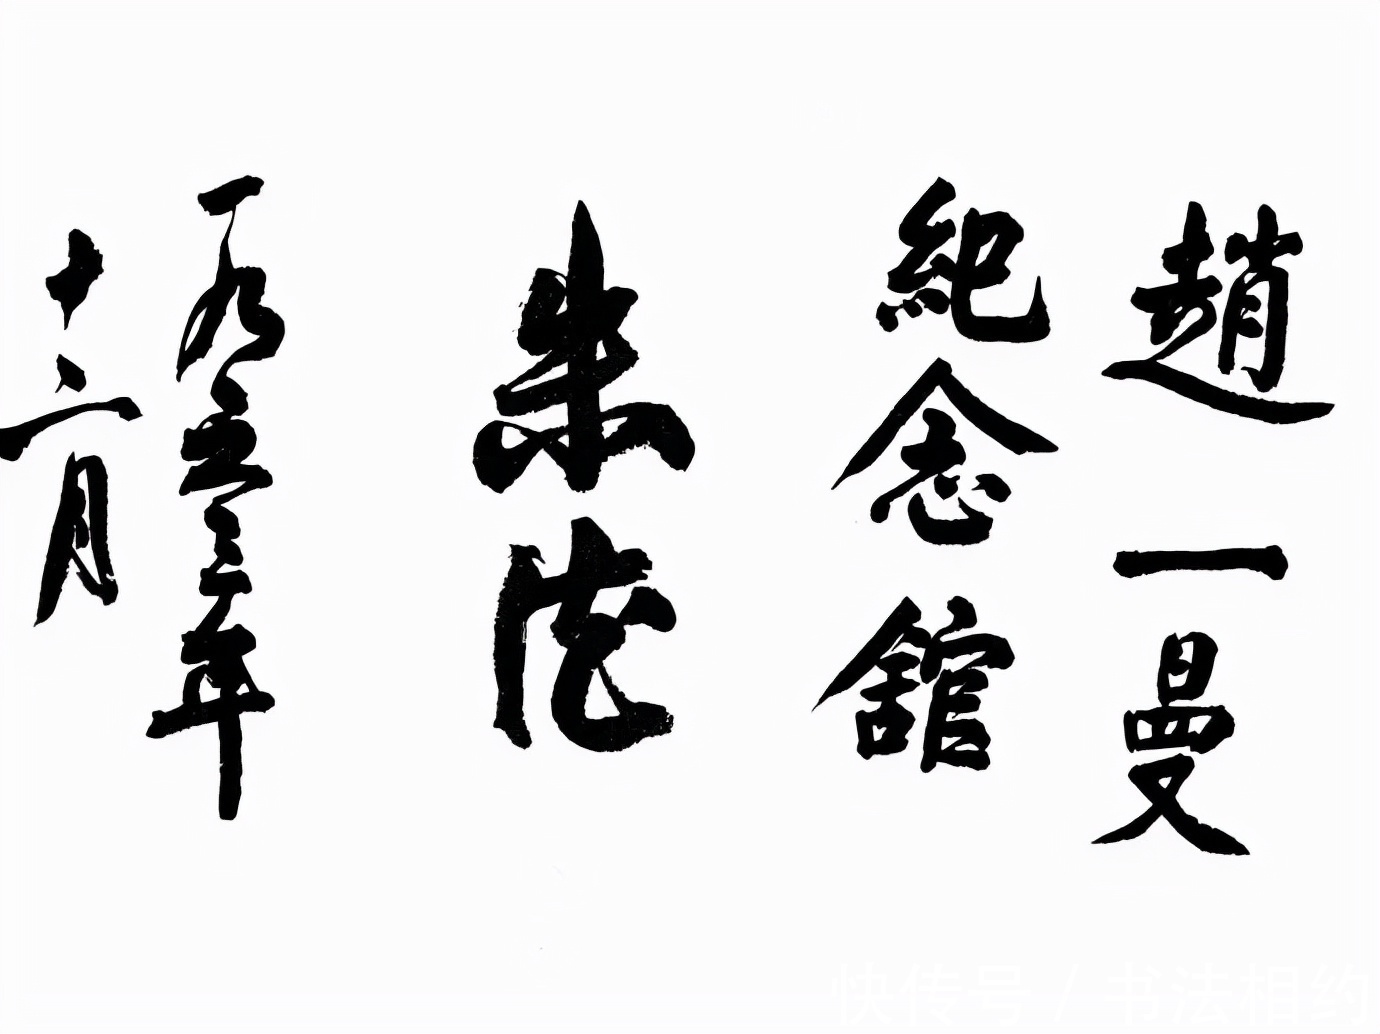 趙一曼
紀念舘
朱德
一九五三年
十二月
快传号 / 书法相约